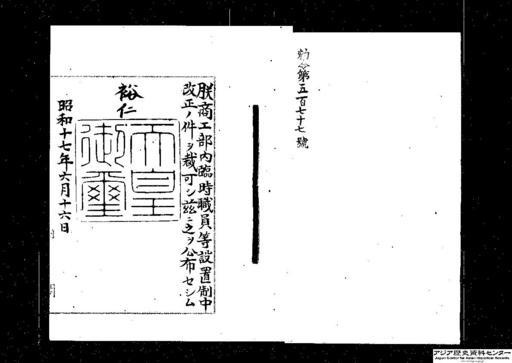 勅令第五百七十七號
朕商工部内臨時職員等設置制中
改正ノ件ヲ裁可シ茲ニ之ヲ公布セシム
裕仁
天皇
御璽
昭和十七年六月十六日
アジア歴史資料センター
Japan Center for Asian Historical Records